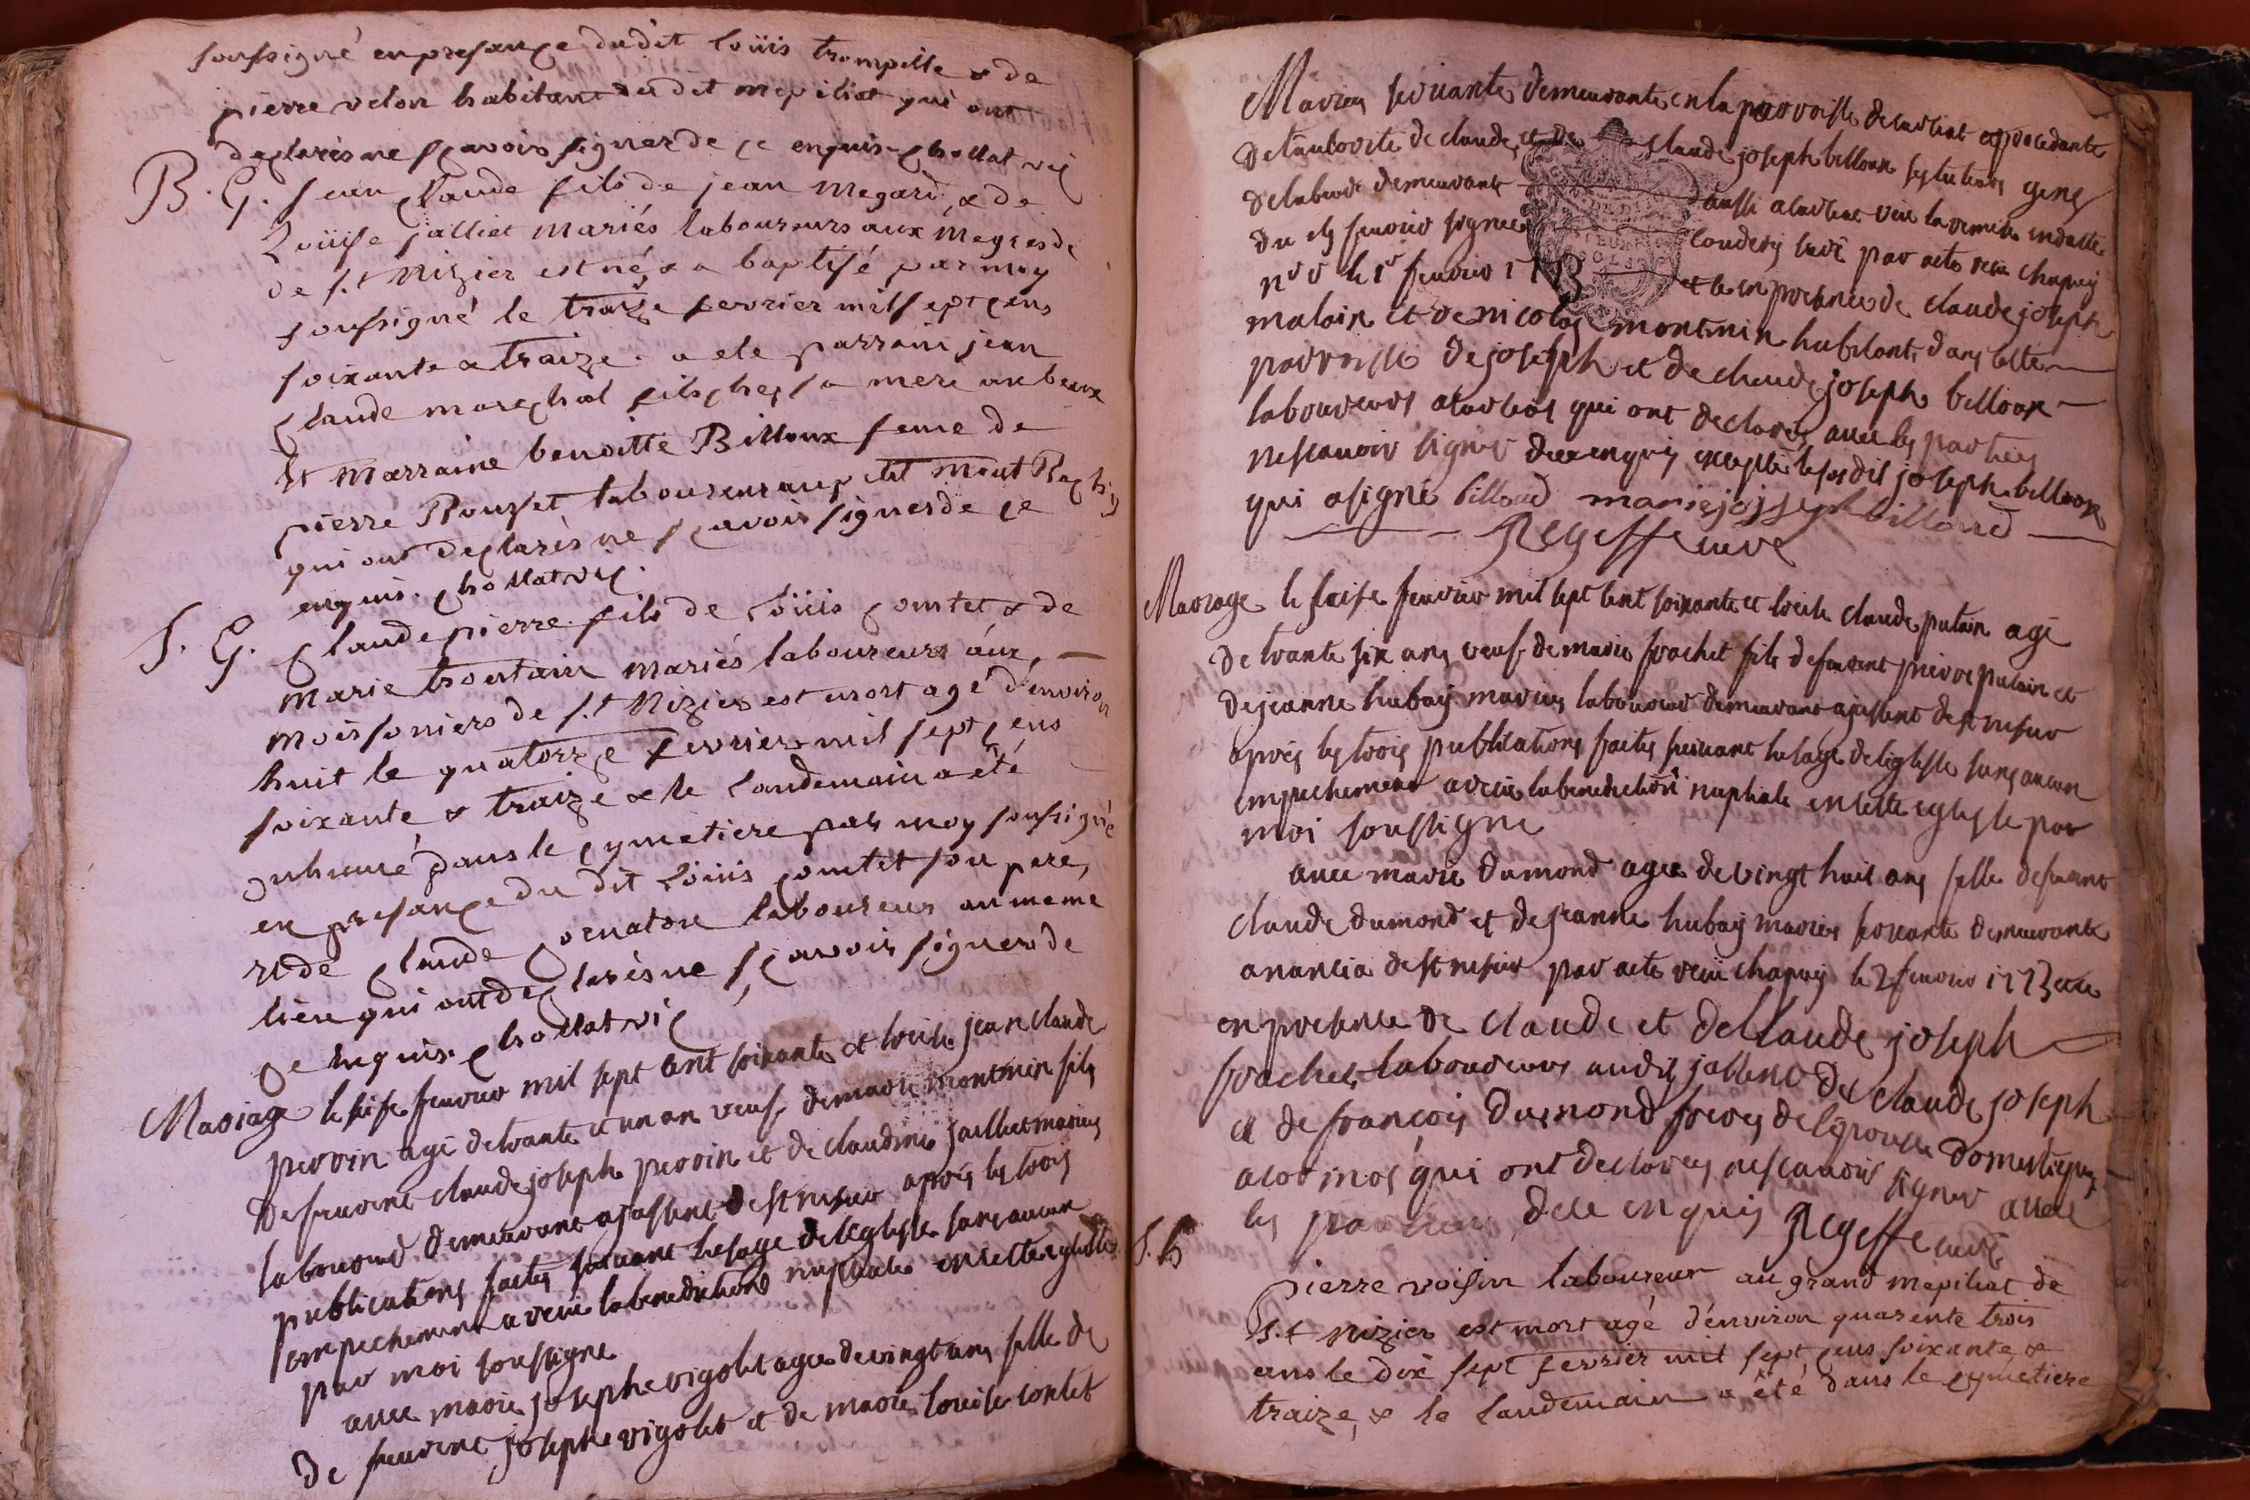 soussigné en presançe du dit Loüis trompille & de
pierre velon habitant du dit mepiliat qui ont
declarés ne sçavoir signer de çe enquis. chollat vic
B. G. Jean çlaude fils de jean Megard, & de
Loüise jalliet mariés laboureurs aux Megres de
de s.t Nizier est né, & a baptisé par moy
soussigné le traize fevrier mil sept çens
soixante & traize. a ete parrain jean
çlaude mareçhal fils çhez sa mere aux beaux
et marraine benoitte Billoux feme de
pierre Rousset laboureur au petit mont
qui ont deçlarés ne sçavoir signer de çe
enquis. çhollat vic.
S. G. çlaude pierre fils de Loüis çomtet & de
Marie trontain mariés laboureurs aux
Moissoniers de s.t Nizier est mort agé d'environ
huit le quatorze fevrier mil sept çens
soixante & traize & le landemain a été
inhumé dans le çymetiere par moy soussigné
en presançe du dit Loüis çomtet son pere,
et de çlaude laboureur au meme
lieu qui ont deçlarés ne sçavoir signer de
çe enquis. çhollat vic
Mariage le seise fevrier mil sept cent soixante et treise jean claude
perrin agé de trante et un an veuf de marie montmin fils
de feuvent claude joseph perrin et de claudine jailliet mariés
laboureur demeurant a jassent de st nesier après les trois
publications faites suivant lusage de leglise sans aucun
empechement a recu la benediction nuptiale en cette eglise
par moi soussigné
avec marie josephe vigolet agée de vingt ans fille de
de feuvent joseph vigolet et de marie louise contet
Mariés servante demeurante en la parroisse de et procedante
de lautorité de claude et de claude joseph billoux ses tuteurs gens
de labeur demeurant aussi a vue la remise en datte
du signée loudey curé par acte recu chapuy
n.re le 1.r fevrier 1773 et ce en presence de claude joseph
malain et de nicolas montmin habitants dans cette
parroisse de joseph et de claude joseph billoux
laboureurs a qui ont declarés avec les parties
ne scavoir signer de ce enquis excepté le susdit joseph billoux
qui a signé billoud marie joseph billoud
Regeffe curé
Mariage le seise fevrier mil sept cent soixante et treise claude putain agé
de trante six ans veuf de marie frachet fils de feuvent pierre putain et
de jeanne hubay mariés laboureur demeurant a jassent de st nesier
après les trois publications faites suivant lusage de leglise sans aucun
empechement a recu la benediction nuptiale en cette eglise par
moi soussigné
avec marie dumond agée de vingt huit ans fille de feuvent
claude dumond et de jeanne hubay mariés servante demeurante
a nancia de st nesier par acte recu chapuy le 2 fevrier 1773 et ce
en presence de claude et de claude joseph
frachet laboureurs audit jassent de claude joseph
et de françois dumond freres de lepouse domestiques
a cormos qui ont declarés ne scavoir signer avec
les parties de ce enquis Regeffe curé
S. G. pierre voisin laboureur au grand mepiliat de
s.t nizier est mort agé d'environ quarente trois
ans le dix sept fevrier mil sept çens soixante &
traize, & le landemain a été dans le çymetiere